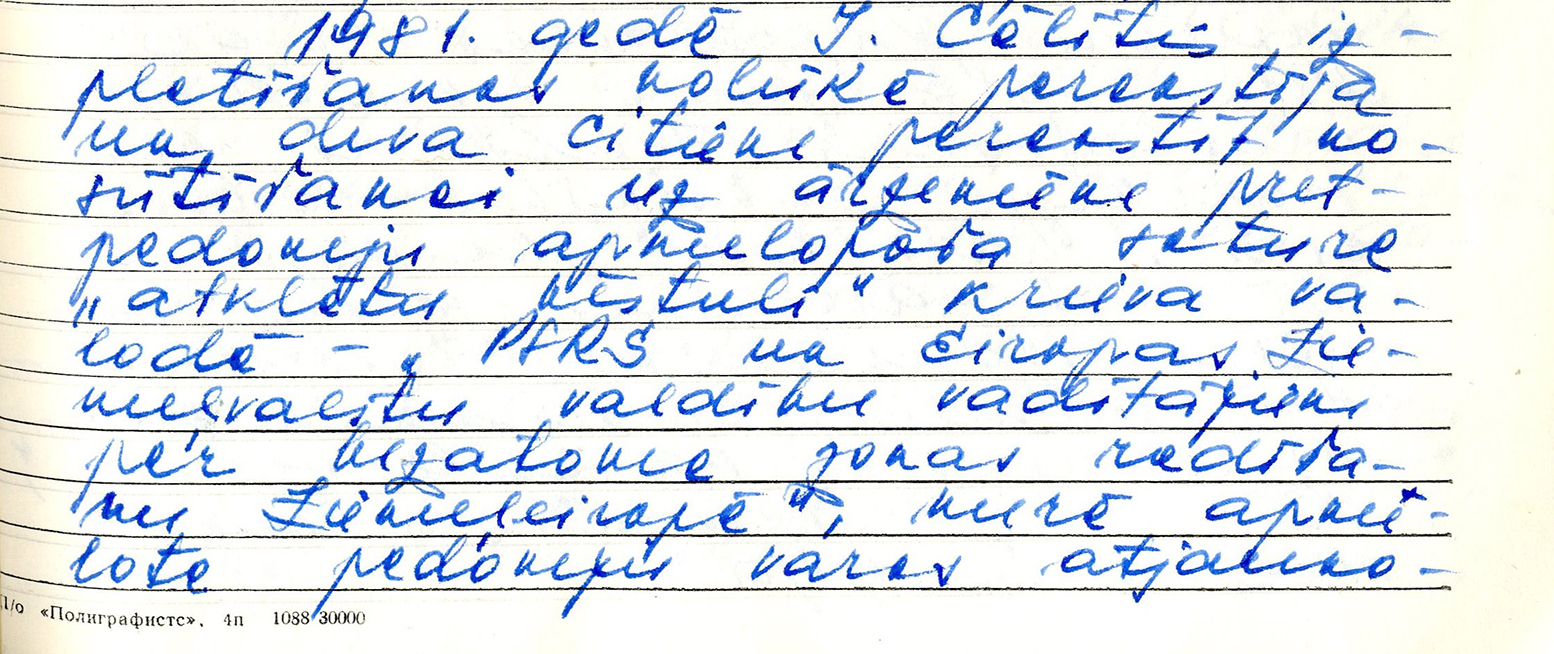 1981. gadā J. Cālītis iz-
platīšanas nolūkā parakstīja
un deva citiem parakstīt no-
sūtīšanai uz ārzemēm pret-
padomju apmelojoša satura
„atklātu vēstuli" krievu va-
lodā – „PSRS un Eiropas Zie-
meļvalstu valdību vadītājiem
par bezatomu zonas radīša-
nu Ziemeļeiropā", kurā apme-
lota padomju varas atjauno-
П/о «Полиграфистс». 4п 1088 30000